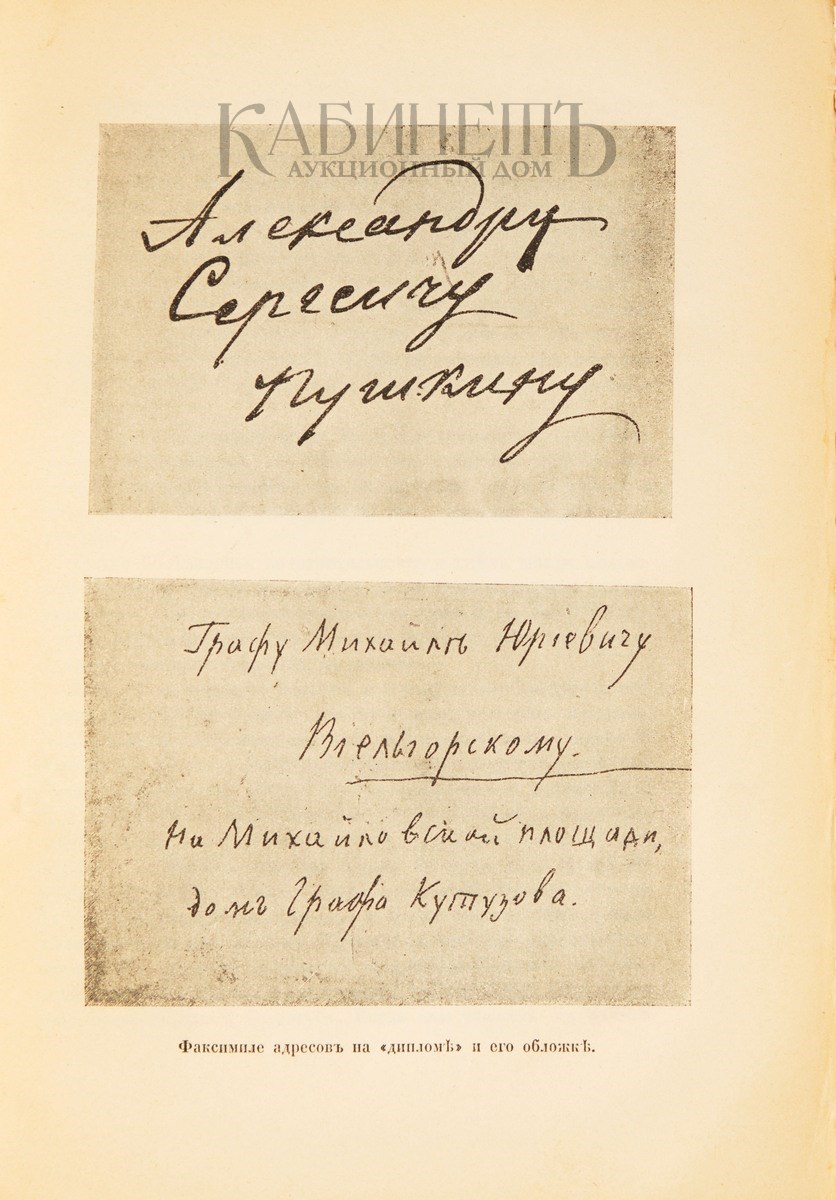 КАБИНЕТЪ
АУКЦИОННЫЙ ДОМ
Александру
Сергеичу
Пушкину
Графу Михайлѣ Юрiевичу
Вiельгорскому.
На Михайловской площади,
домъ Графа Кутузова.
Факсимиле адресовъ на «дипломѣ» и его обложкѣ.